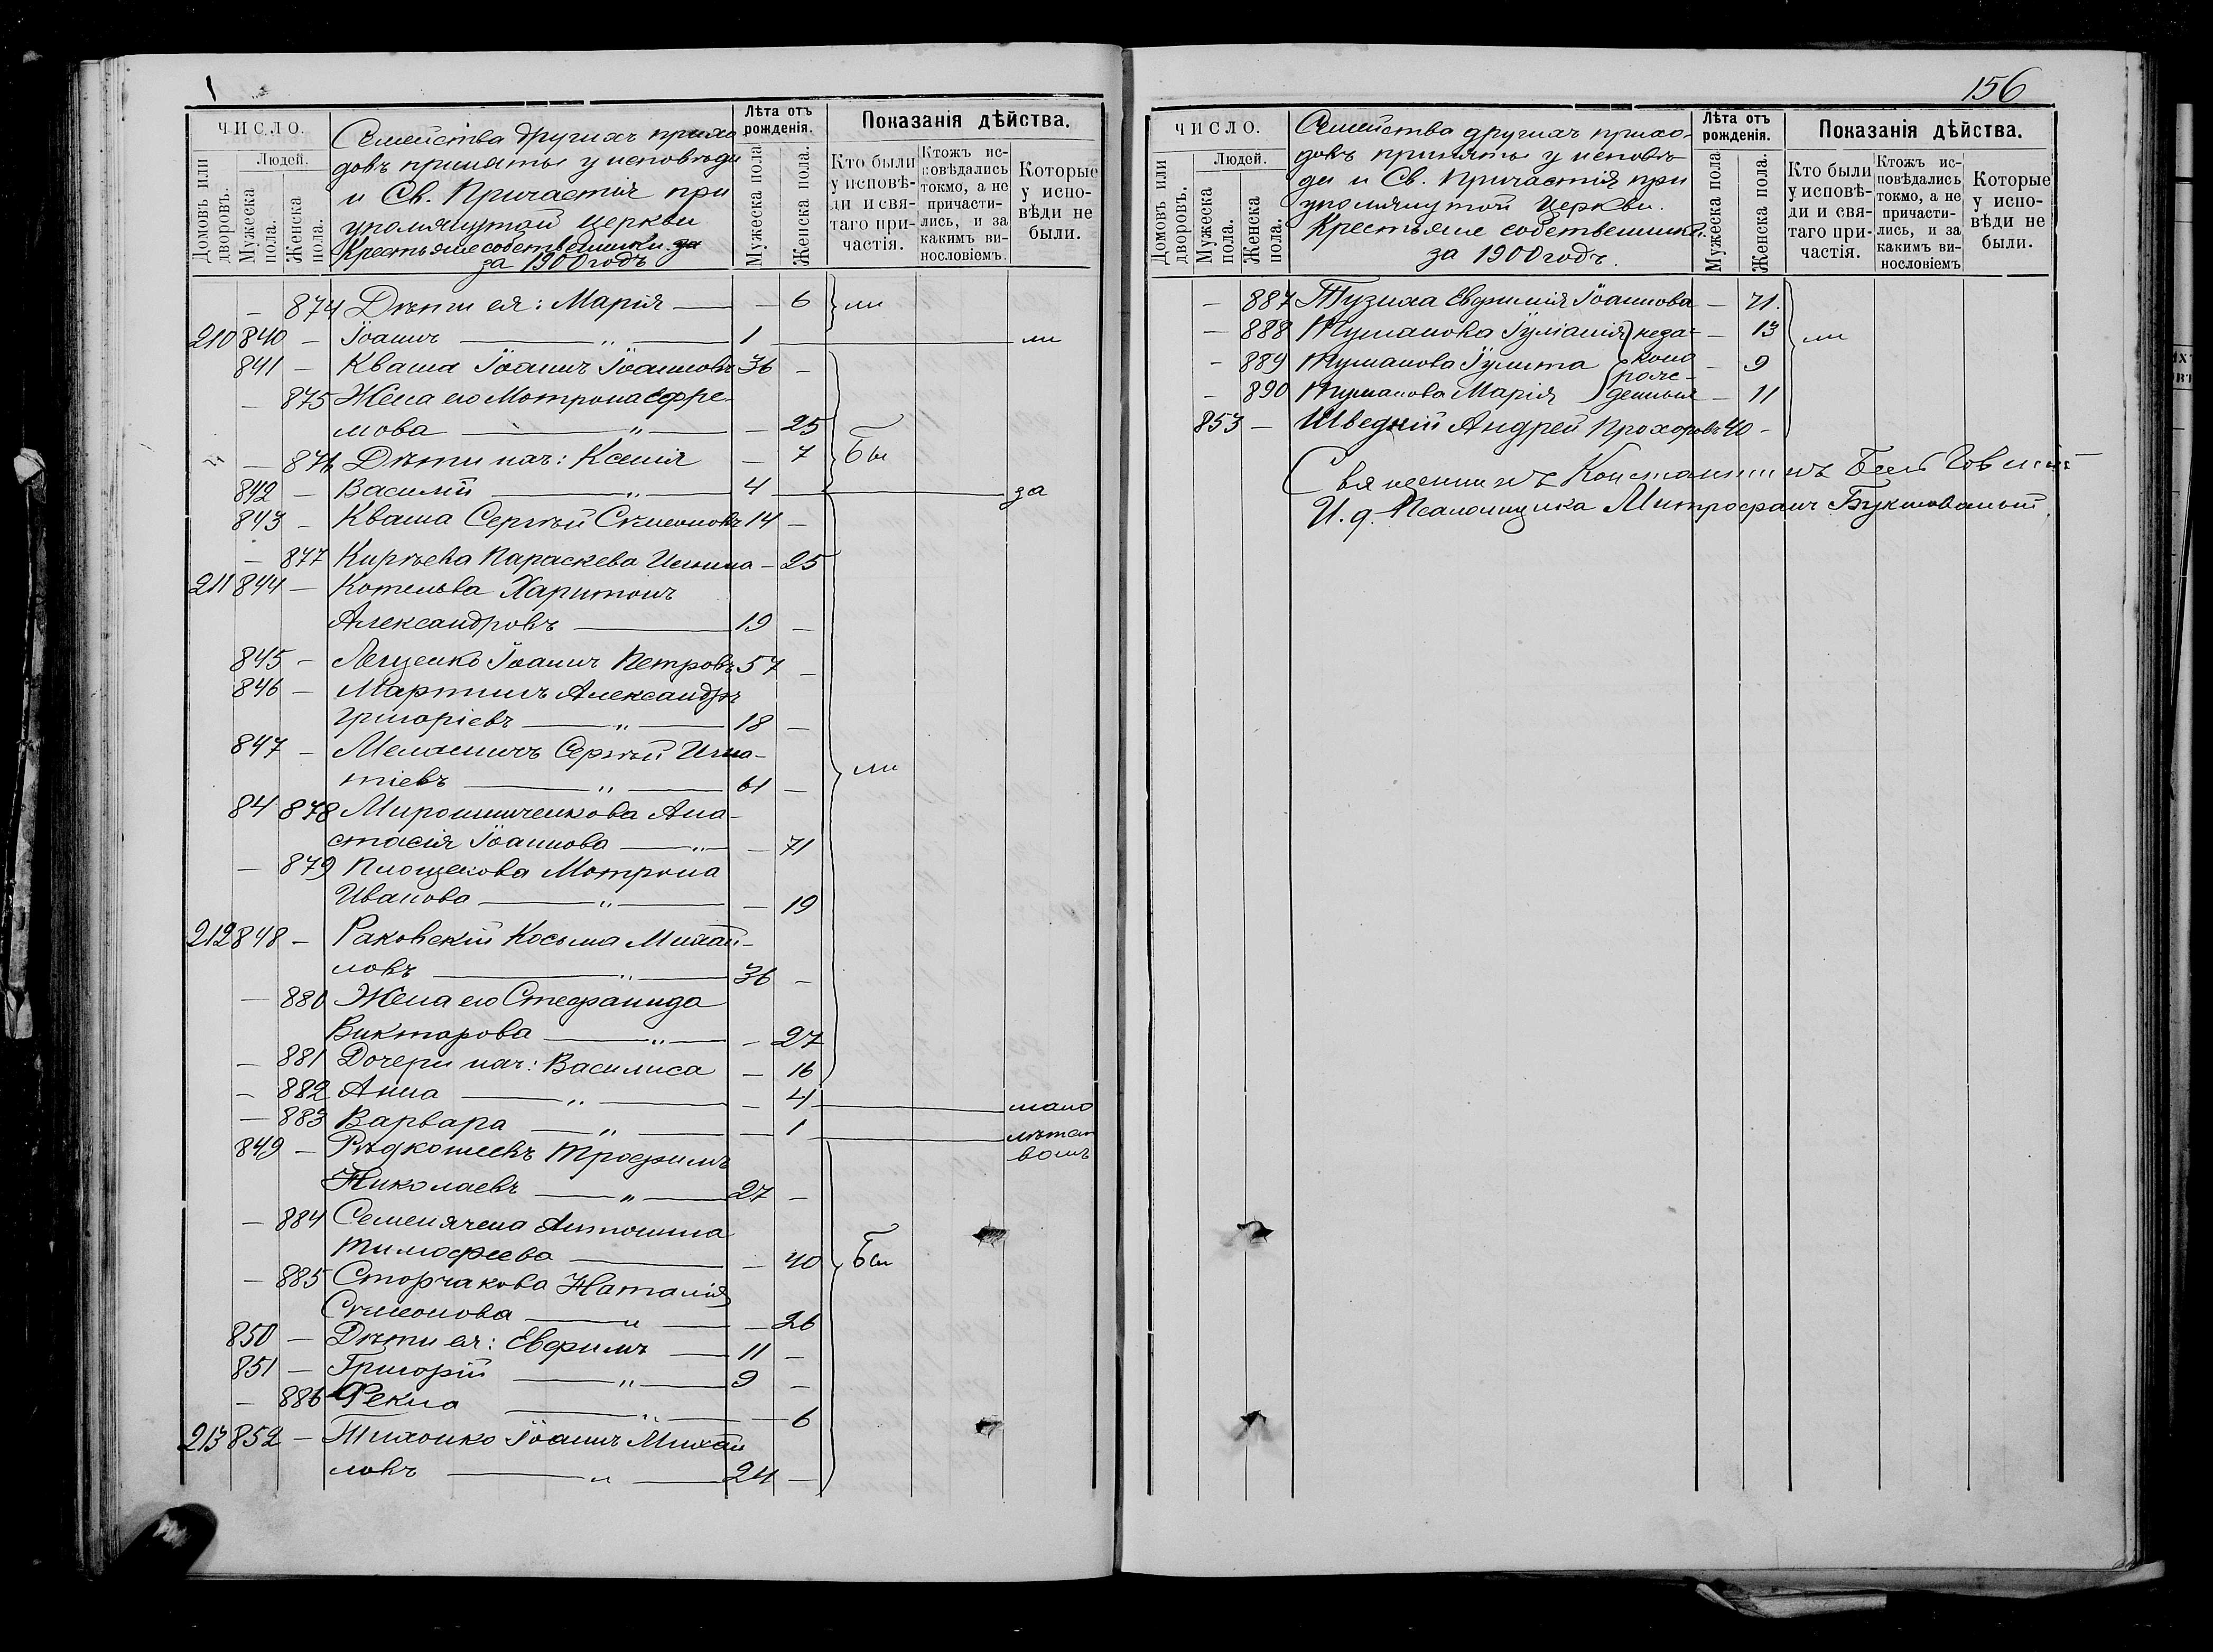 156
ЧИСЛО.
Людей.
Домовъ или дворовъ.
Мужеска пола.
Женска пола.
Семейства другихъ прихо
довъ приняты у исповѣди
и Св. Причастія при
упомянутой церкви
Крестьяне собственники за
за 1900 годъ
Лѣта отъ рожденія.
Мужеска пола
Женска пола.
Показанія дѣйства.
Кто были у исповѣ-ди и свя-таго при-частія.
Ктожъ ис-повѣдались токмо, а не причасти-лись, и за какимъ ви-нословіемъ.
Которые у испо-вѣди не были.
– 874 Дѣти ея: Марія – 6 ли
210 840 – Іоаннъ 1 ли
841 – Кваша Іоаннъ Іоанновъ 36 –
– 875 Жена его Мотрона Ефре-
мова – 25
– 876 Дѣти ихъ: Ксенія – 7 бы
842 – Василій 4 за
843 – Кваша Сергѣй Сѵмеоновъ 14 –
– 877 Кирѣева Параскева – 25
211 844 – Котельва Харитонъ
Александровъ 19 –
845 – Лещенко Іоаннъ Петровъ 57 –
846 – Мартинъ Александръ
Григоріевъ 18 –
847 – Сергѣй Игна-
тіевъ 61 – ли
84 878 Мирошниченкова Ана-
стасія Іоаннова – 71
– 879 Мотрона
Иванова – 19
212 848 – Раковскій Косьма Михай-
ловъ 36 –
– 880 Жена его Стефанида
Виктарова – 27
– 881 Дочери ихъ: Василиса – 16
– 882 Анна – 4 мало
– 883 Варвара – 1 лѣтст
849 – Трофимъ вомъ
Николаевъ 27 –
– 884 Антонина
Тимофеева – 40 бы
– 885 Сторчакова Наталія
Сѵмеонова – 26
850 – Дѣти ея: Евфимъ 11 –
851 – Григорій 9 –
– 886 Фекла – 6
213 852 – Тихонко Іоаннъ Михай
ловъ 24 –
ЧИСЛО.
Людей.
Домовъ или дворовъ.
Мужеска пола.
Женска пола.
Семейства другихъ прихо-
довъ приняты у исповѣ-
ди и Св. Причастія при
упомянутой церкви.
Крестьяне собственники.
за 1900 годъ.
Лѣта отъ рожденія.
Мужеска пола
Женска пола.
Показанія дѣйства.
Кто были у исповѣ-ди и свя-таго при-частія.
Ктожъ ис-повѣдались токмо, а не причасти-лись, и за какимъ ви-нословіемъ
Которые у испо-вѣди не были.
– 887 Тузиха Евфимія Іоаннова – 71.
– 888 Туманова Іуліанія неза- – 13 ли
– 889 Туманова Іулита коно – 9
рож-
– 890 Туманова Марія денныя – 11
853 – Шведкій Андрей Прохоровъ 40 –
Священникъ Константинъ
И. д. Псаломщика Митрофанъ